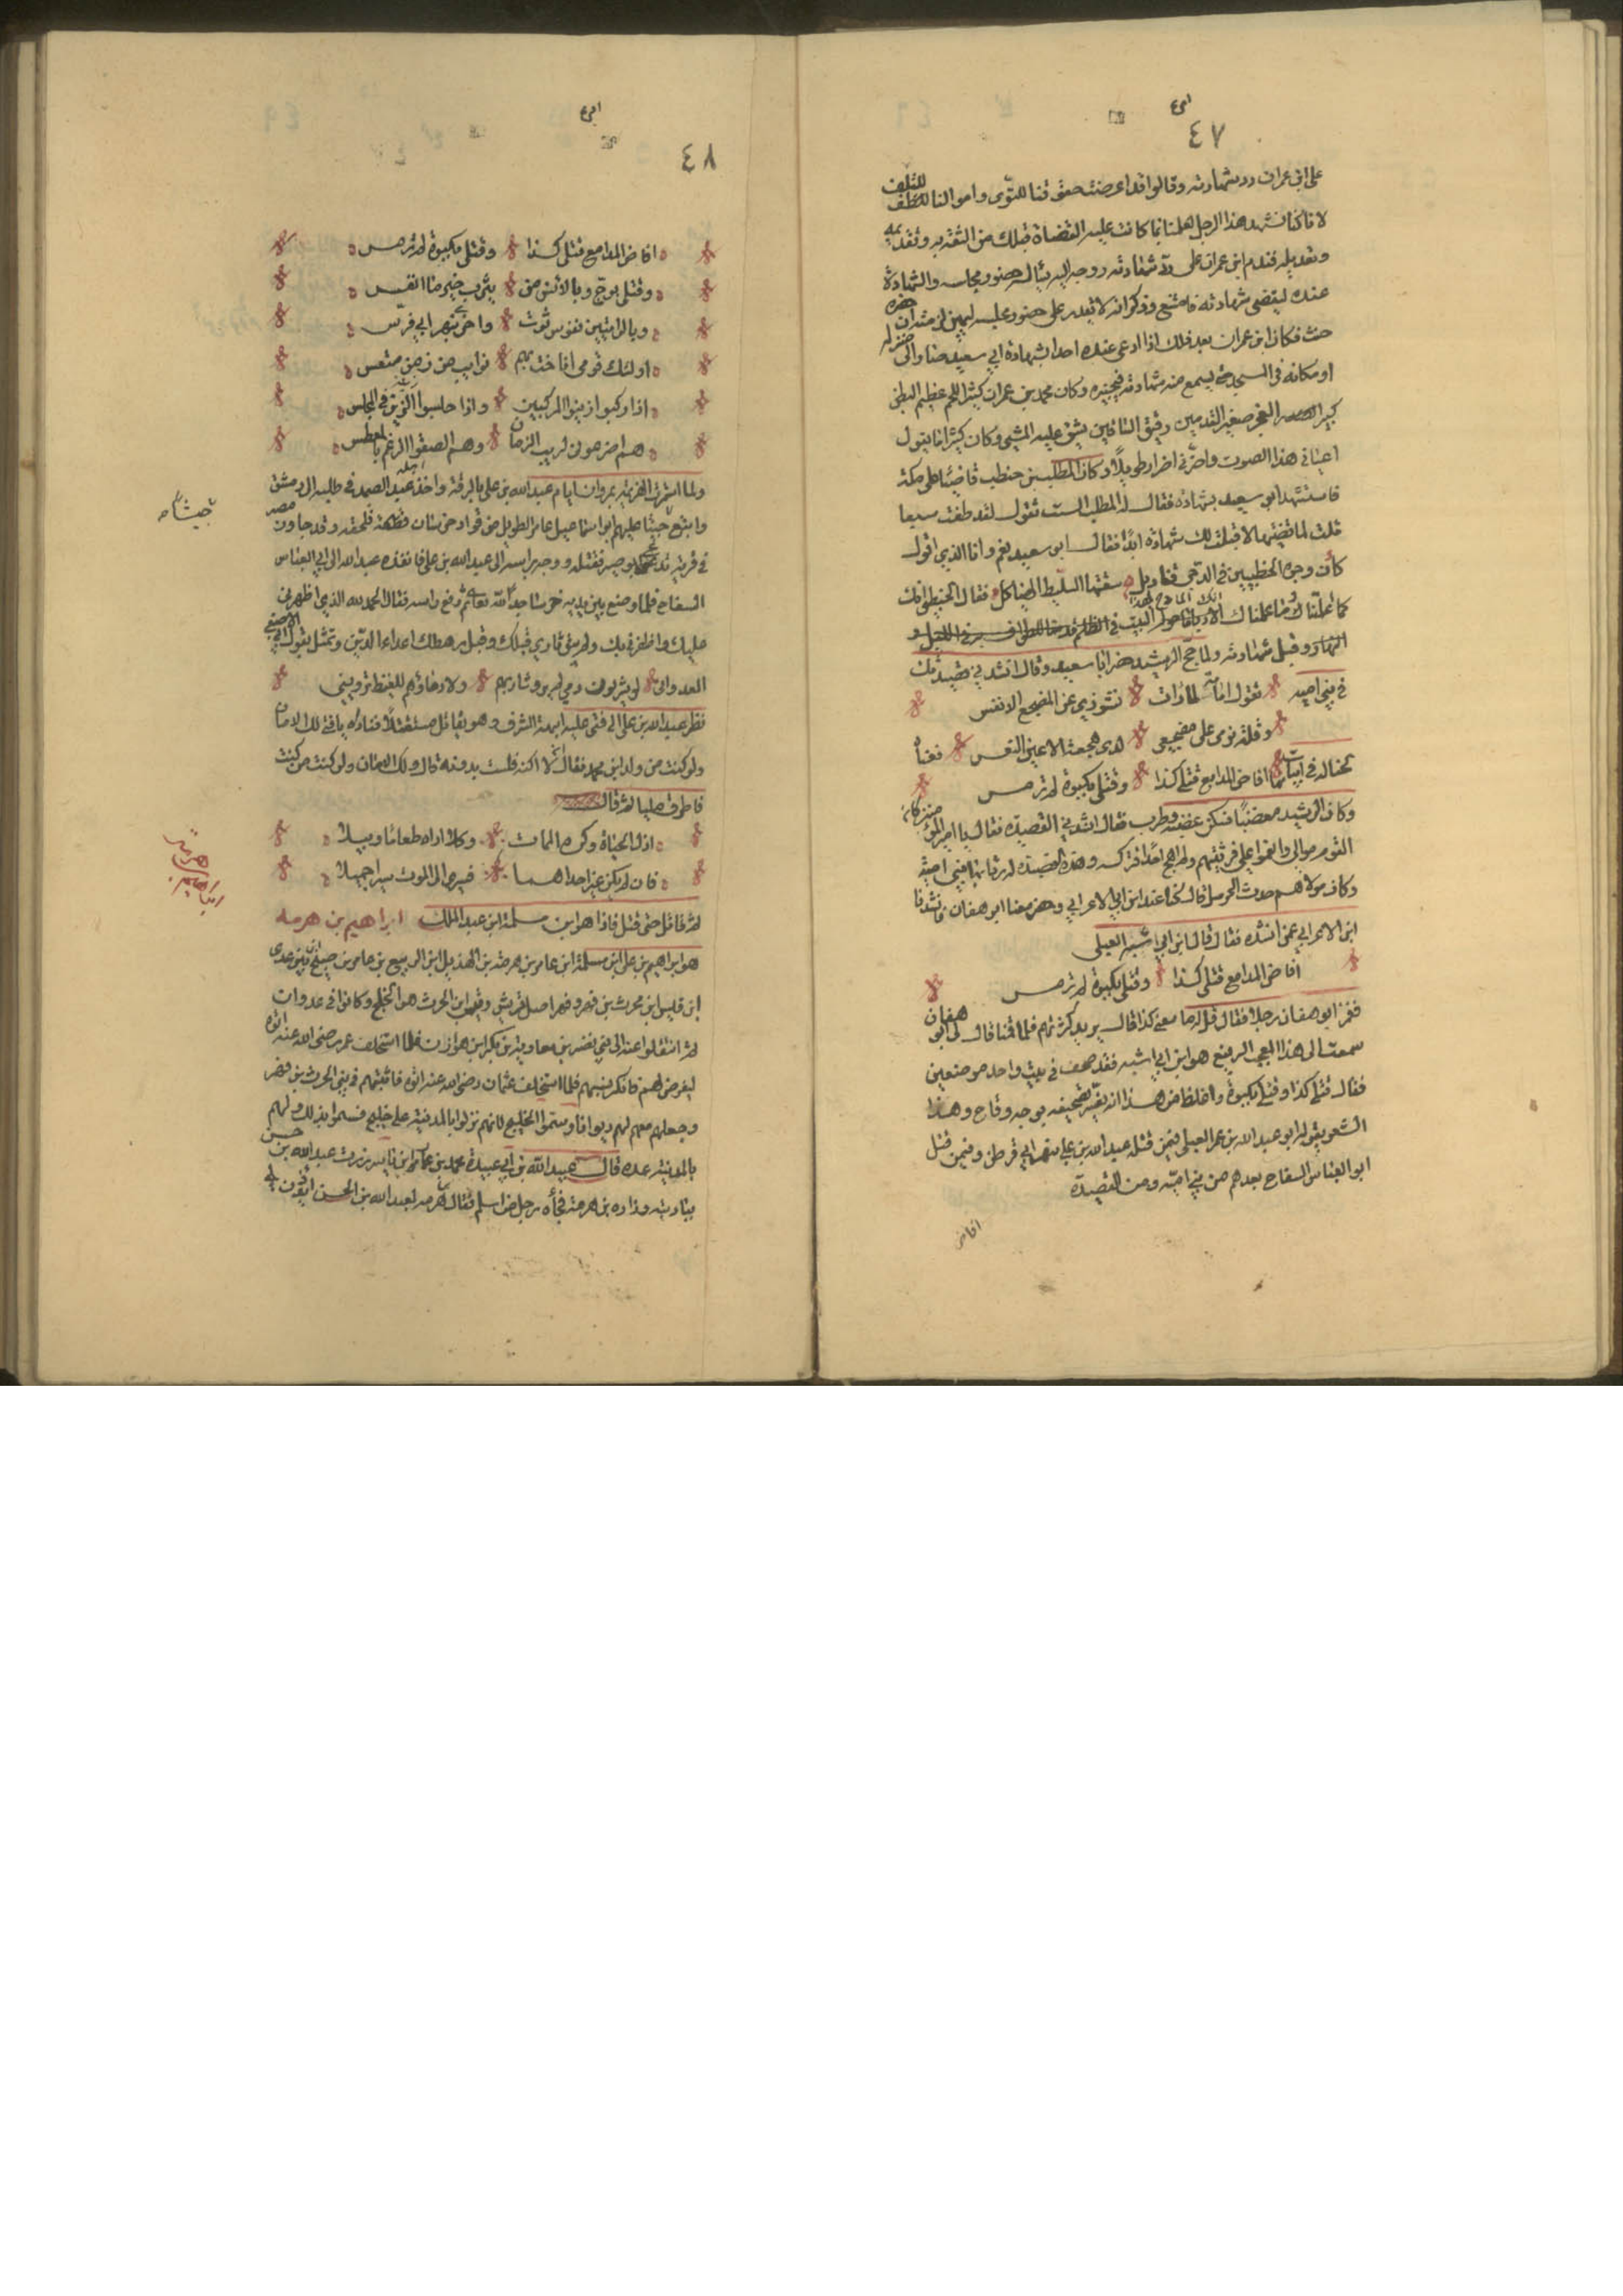 ٤٧
على ابن عمران رد شهادته وقالوا قد اعرضت حقوقنا للتوى واموالنا للتلف
لانا كنا نشهد هذا الرجل لعلمنا بما كانت عليه القضاة قبلك من الثقة به وتقديمه
وتعديله فندم ابن عمران على رد شهادته ووجه اليه يسأله حضور مجلسه والشهادة
عنده ليقضي بشهادته فامتنع وذكر انه لا يقدر على حضور مجلسه ليمين لزمته ان حضره
حنث فكان ابن عمران بعد ذلك اذا ادعى عنده احد بشهادة ابي سعيد صار الى منزله
او مكانه في المسجد حتى يسمع منه شهادته فيجيزه وكان محمد بن عمران كثير اللحم عظيم البطن
كبير العجز صغير القدمين دقيق الساقين يشق عليه المشي وكان كثيرا ما يقول
اعياني هذا الصوت واضر بي اضرارا طويلا وكان المطلب بن حنطب قاضيا على مكة
فاستشهد ابو سعيد بشهادة فقال له المطلب الست تقول لقد طفت سبعا
قلت لما قضيتها لا قبلت لك شهادة ابدا فقال ابو سعيد نعم وانا الذي اقول
كأن وجوه الحنطبيين في الدجى قناديل سقتها السليط الهياكل فقال الحنطبي انك
ما علمناك الا دبابا حول البيت في الظلم مدمنا للطواف به في الليل و
النهار وقبل شهادته ولما حج الرشيد حضر ابا سعيد وقال انشدني قصيدتك
في بني اميه تقول امامة لما رات نشوزي عن المضجع الانفس
وقلة نومي على مضجعي لدى هجعة الاعين النعس فغناه
لحنا له في ابيات منها افاض المدامع قتلى كذا وقتلى بكبوة لم ترمس
وكان الرشيد مغضبا فسكن غضبه وطرب فقال انشدني القصيدة فقال يا امير المؤمنين كان
القوم موالي وانعموا علي فرثيتهم ولم اهج احدا فتركه وهذه القصيدة له رثا بها بني امية
وكان مولاهم حدث الحرمي قال كنا عند ابن الاعرابي وحضر معنا ابو هفان فانشدنا
ابن الاعرابي عمن انشده فقال قال ابن ابي شبه العبلي
افاض المدامع قتلى كذا وقتلى بكبوة لم ترمس
فغمز ابو هفان رجلا فقال قل له ما معنى كذا قال يريد كثرتهم فلما قمنا قال لي ابو هفان
سمعت الى هذا المعجب الرقيع هو ابن ابي شبه فقد صحف في بيت واحد موضعين
فقال قتلى كذا وقتلى بكبوة واغلظ من هذا انه يفسر تصحيفه بوجه وقاح وهذا
الشعر يقوله ابو عبد الله بن عمر العبلي فيمن قتله عبد الله بن علي بنهر ابي فرطس وفيمن قتل
ابو العباس السفاح بعدهم من بني امية ومن القصيدة
افاض
٤٨
افاض المدامع قتلى كذا وقتلى بكبوة لم ترمس
وقتلى بوج وبالابتين من يثرب خير ما انفس
وبالرابيين نفوس ثوت واخرى بنهر ابي فرتس
اولئك قومي اناخت بهم نوايب من زمن متعس
اذا ركبوا زينوا المركبين واذا جلسوا الزين في المجلس
هم اضرعوني لريب الزمان وهم الصقوا الرغم بالمعطس
ولما استمرت الهزيمة بمروان ايام عبد الله بن علي بالرقة واخذ عبد الصمد في طلبه الى دمشق
واتبع جيشا عليهم ابو اسماعيل عامر الطويل من قواد خراسان فلحقه وقد جاوز مصر
في قرية تدعى بوصير فقتله ووجه براسه الى عبد الله بن علي فانفذه عبد الله الى ابي العباس
السفاح فلما وضع بين يديه خر ساجدا لله تعالى ثم رفع راسه فقال الحمد لله الذي اظهرني
عليك واظفرني بك ولم يبق ثاري قبلك وقبل رهطك اعداء الدين وتمثل بقول ذي الاصبع
العدواني لو يشربون دمي لم يرو شاربهم ولا دماؤهم للغيظ ترويني
نظر عبد الله بن علي الى فتى عليه ابهة الشرف وهو يقاتل مستقتلا فناداه يا فتى لك الامان
ولو كنت مروان بن محمد فقال ان لا اكنه فلست بدونه قال ولك الامان ولو كنت من كنت
فاطرق مليا ثم قال
اذل الحياة وكره الممات وكلا اراه طعاما وبيلا
فان لم يكن غير احداهما فسيرا الى الموت سيرا جميلا
ثم قاتل حتى قتل فاذا هو ابن مسلمة ابن عبد الملك ابراهيم بن هرمه
هو ابراهيم بن علي ابن مسلمة ابن عامر بن هرمه بن الهذيل ابن الربيع بن عامر بن صبح بن عدي
ابن قيس ابن الحرث بن فهر وفهر اصل قريش وقيس ابن الحرث هو الخلج وكانوا في عدوان
ثم انتقلوا عنه الى بني نضر بن معاوية بن بكر ابن هوازن فلما استخلف عمر رضي الله عنه اتوه
ليفرض لهم فانكر نسبهم فلما استخلف عثمان رضي الله عنه اتوه فاثبتهم في بني الحرث بن فهر
وجعل لهم معهم ديوانا وسموا الخلج لانهم نزلوا بالمدينة على خليج فسموا بذلك ولهم
بالمدينة عدد قال عبيد الله بن ابي عبيدة محمد بن عمار ابن ياسر زرت عبد الله بن حسن
ببادية وزاره بن هرمه فجأه رجل من اسلم فقال بن هرمه لعبد الله بن الحسن
ابراهيم بن هرمه